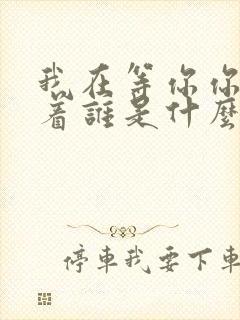 我在等你你
着誰是什麼
停車我要下車